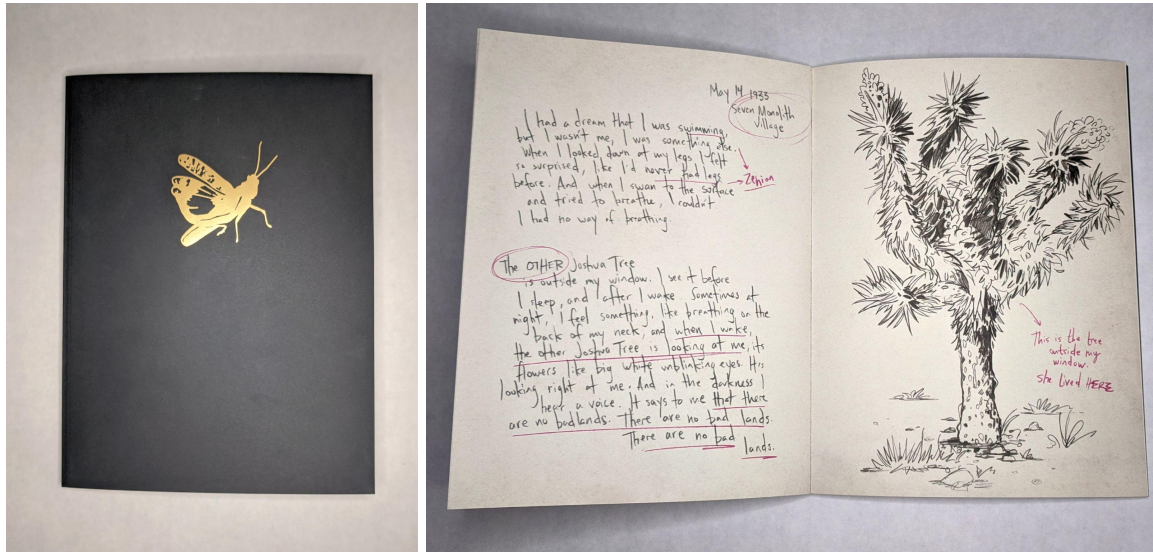 May 14 1933
Seven Monolith
Village
I had a dream that I was swimming,
but I wasn't me, I was something else.
When I looked down at my legs I felt
so surprised, like I'd never had legs
before. And when I swam to the surface
and tried to breathe, I couldn't
I had no way of breathing.
Zenion
The OTHER Joshua Tree
is outside my window. I see it before
I sleep, and after I wake sometimes at
night, I feel something, like breathing on the
back of my neck, and when I wake,
the other Joshua Tree is looking at me, its
flowers like big white unblinking eyes. It is
looking right at me. And in the darkness I
hear a voice. It says to me that there
are no badlands. There are no bad lands.
There are no bad
lands.
This is the tree
outside my
window.
She lived HERE